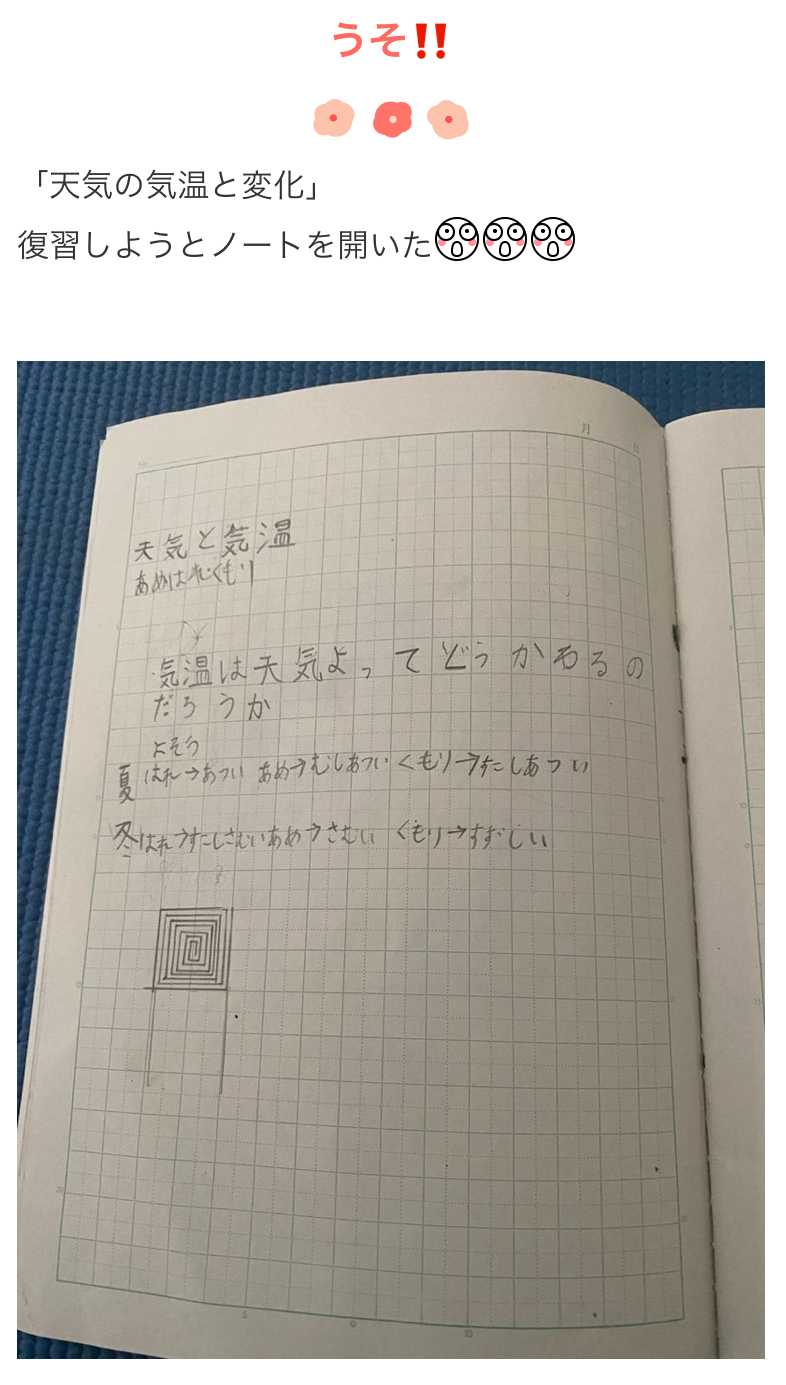 うそ‼️
「天気の気温と変化」
復習しようとノートを開いた
月
天気と気温
あめはれくもり
気温は天気よってどうかわるの
だろうか
よそう
夏はれ→あつい あめ→むしあつい くもり→すこしあつい
冬はれ→すこしさむいあめ→さむい くもり→すずしい
5
10